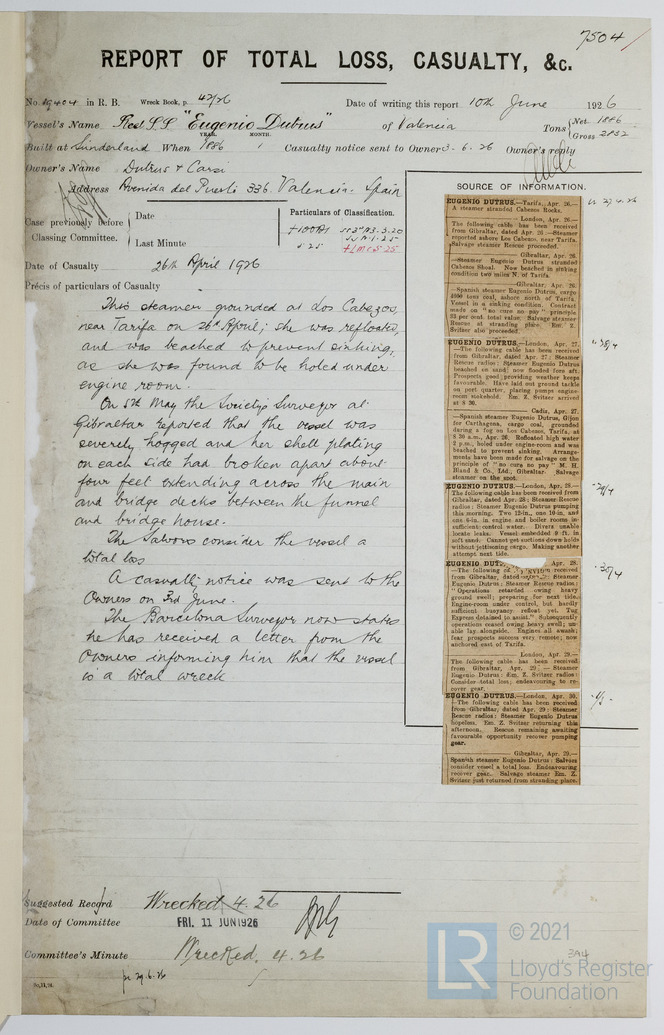 7504
REPORT OF TOTAL LOSS, CASUALTY, &c.
No. 19404 in R. B. Wreck Book, p. 42/26 Date of writing this report 10th June 1926
Vessel's Name SS "Eugenio Dutrus" of Valencia Tons { Net. 1846 Gross 2832
YEAR. MONTH.
Built at Sunderland When 1886 1 Casualty notice sent to Owner 3.6.26 Owner's reply
Owner's Name Dutrus &
Address Avenida del Puerto 336. Valencia. Spain
Case previously before Classing Committee. { Date
Last Minute
Particulars of Classification.
+100A1
5.25
+LMC 5.25
Date of Casualty 26th April 1926
Précis of particulars of Casualty
This steamer grounded at Los Cabezos,
near Tarifa on 26th April; she was refloated,
and was beached to prevent sinking,
as she was found to be holed under
engine room.
On 5th May the Society's Surveyor at
Gibraltar reported that the vessel was
severely hogged and her shell plating
on each side had broken apart about
four feet extending across the main
and bridge decks between the funnel
and bridge house.
The Salvors consider the vessel a
total loss
A casualty notice was sent to the
Owners on 3rd June.
The Barcelona Surveyor now states
he has received a letter from the
Owners informing him that the vessel
is a total wreck
SOURCE OF INFORMATION.
EUGENIO DUTRUS.—Tarifa, Apr. 26.—
A steamer stranded Cabezos Rocks.
—London, Apr. 26.—
The following cable has been received
from Gibraltar, dated Apr. 26:—Steamer
reported ashore Los Cabezos, near Tarifa.
Salvage steamer Rescue proceeded.
—Gibraltar, Apr. 26.
—Steamer Eugenio Dutrus stranded
Cabezos Shoal. Now beached in sinking
condition two miles N. of Tarifa.
—Gibraltar, Apr. 26.—
Spanish steamer Eugenio Dutrus, cargo
4000 tons coal, ashore north of Tarifa.
Vessel in a sinking condition. Contract
made on "no cure no pay" principle
per cent. total value. Salvage steamer
Rescue at stranding place. Em. Z.
Svitzer also proceeded.
EUGENIO DUTRUS.—London, Apr. 27.
—The following cable has been received
from Gibraltar, dated Apr. 27: Steamer
Rescue radios: Steamer Eugenio Dutrus
beached on sand; now flooded fore aft.
Prospects good; providing weather keeps
favourable. Have laid out ground tackle
on port quarter, placing pumps engine-
room stokehold. Em. Z. Svitzer arrived
at 8 30.
—Cadiz, Apr. 27.
—Spanish steamer Eugenio Dutrus, Gijon
for Carthagena, cargo coal, grounded
during a fog on Los Cabezos, Tarifa, at
8 30 a.m., Apr. 26. Refloated high water
2 p.m., holed under engine-room and was
beached to prevent sinking. Arrange-
ments have been made for salvage on the
principle of "no cure no pay" M. H.
Bland & Co., Ltd., Gibraltar. Salvage
steamer on the spot.
EUGENIO DUTRUS.—London, Apr. 28.—
The following cable has been received from
Gibraltar, dated Apr. 28: Steamer Rescue
radios: Steamer Eugenio Dutrus pumping
this morning. Two 12-in., one 10-in. and
one 6-in. in engine and boiler rooms in-
sufficient control water. Divers unable
locate leaks. Vessel embedded 9 ft. in
soft sand. Cannot get suctions down holds
without jettisoning cargo. Making another
attempt next tide.
EUGENIO DUTRUS. Apr. 28.
—The following received
from Gibraltar, dated Steamer
Eugenio Dutrus: Steamer Rescue radios:
"Operations retarded owing heavy
ground swell; preparing for next tide.
Engine-room under control, but hardly
sufficient buoyancy refloat yet. Tug
Express detained to assist." Subsequently
operations ceased owing heavy swell; un-
able lay alongside. Engines all awash;
fear prospects success very remote; now
anchored east of Tarifa.
—London, Apr. 29.—
The following cable has been received
from Gibraltar, Apr. 29:—Steamer
Eugenio Dutrus: Em. Z. Svitzer radios:
Consider total loss; endeavouring to re-
cover gear.
EUGENIO DUTRUS.—London, Apr. 30.
—The following cable has been received
from Gibraltar, dated Apr. 29: Steamer
Rescue radios: Steamer Eugenio Dutrus
hopeless. Em. Z. Svitzer returning this
afternoon. Rescue remaining awaiting
favourable opportunity recover pumping
gear.
—Gibraltar, Apr. 29.—
Spanish steamer Eugenio Dutrus: Salvors
consider vessel a total loss. Endeavouring
recover gear. Salvage steamer Em. Z.
Svitzer just returned from stranding place.
27.4.26
" 28/4
" 29/4
" 30/4
" 1/5
Suggested Record Wrecked 4.26
Date of Committee FRI. 11 JUN 1926
Committee's Minute Wrecked. 4.26
29.6.26
394
LR © 2021
Lloyd's Register
Foundation